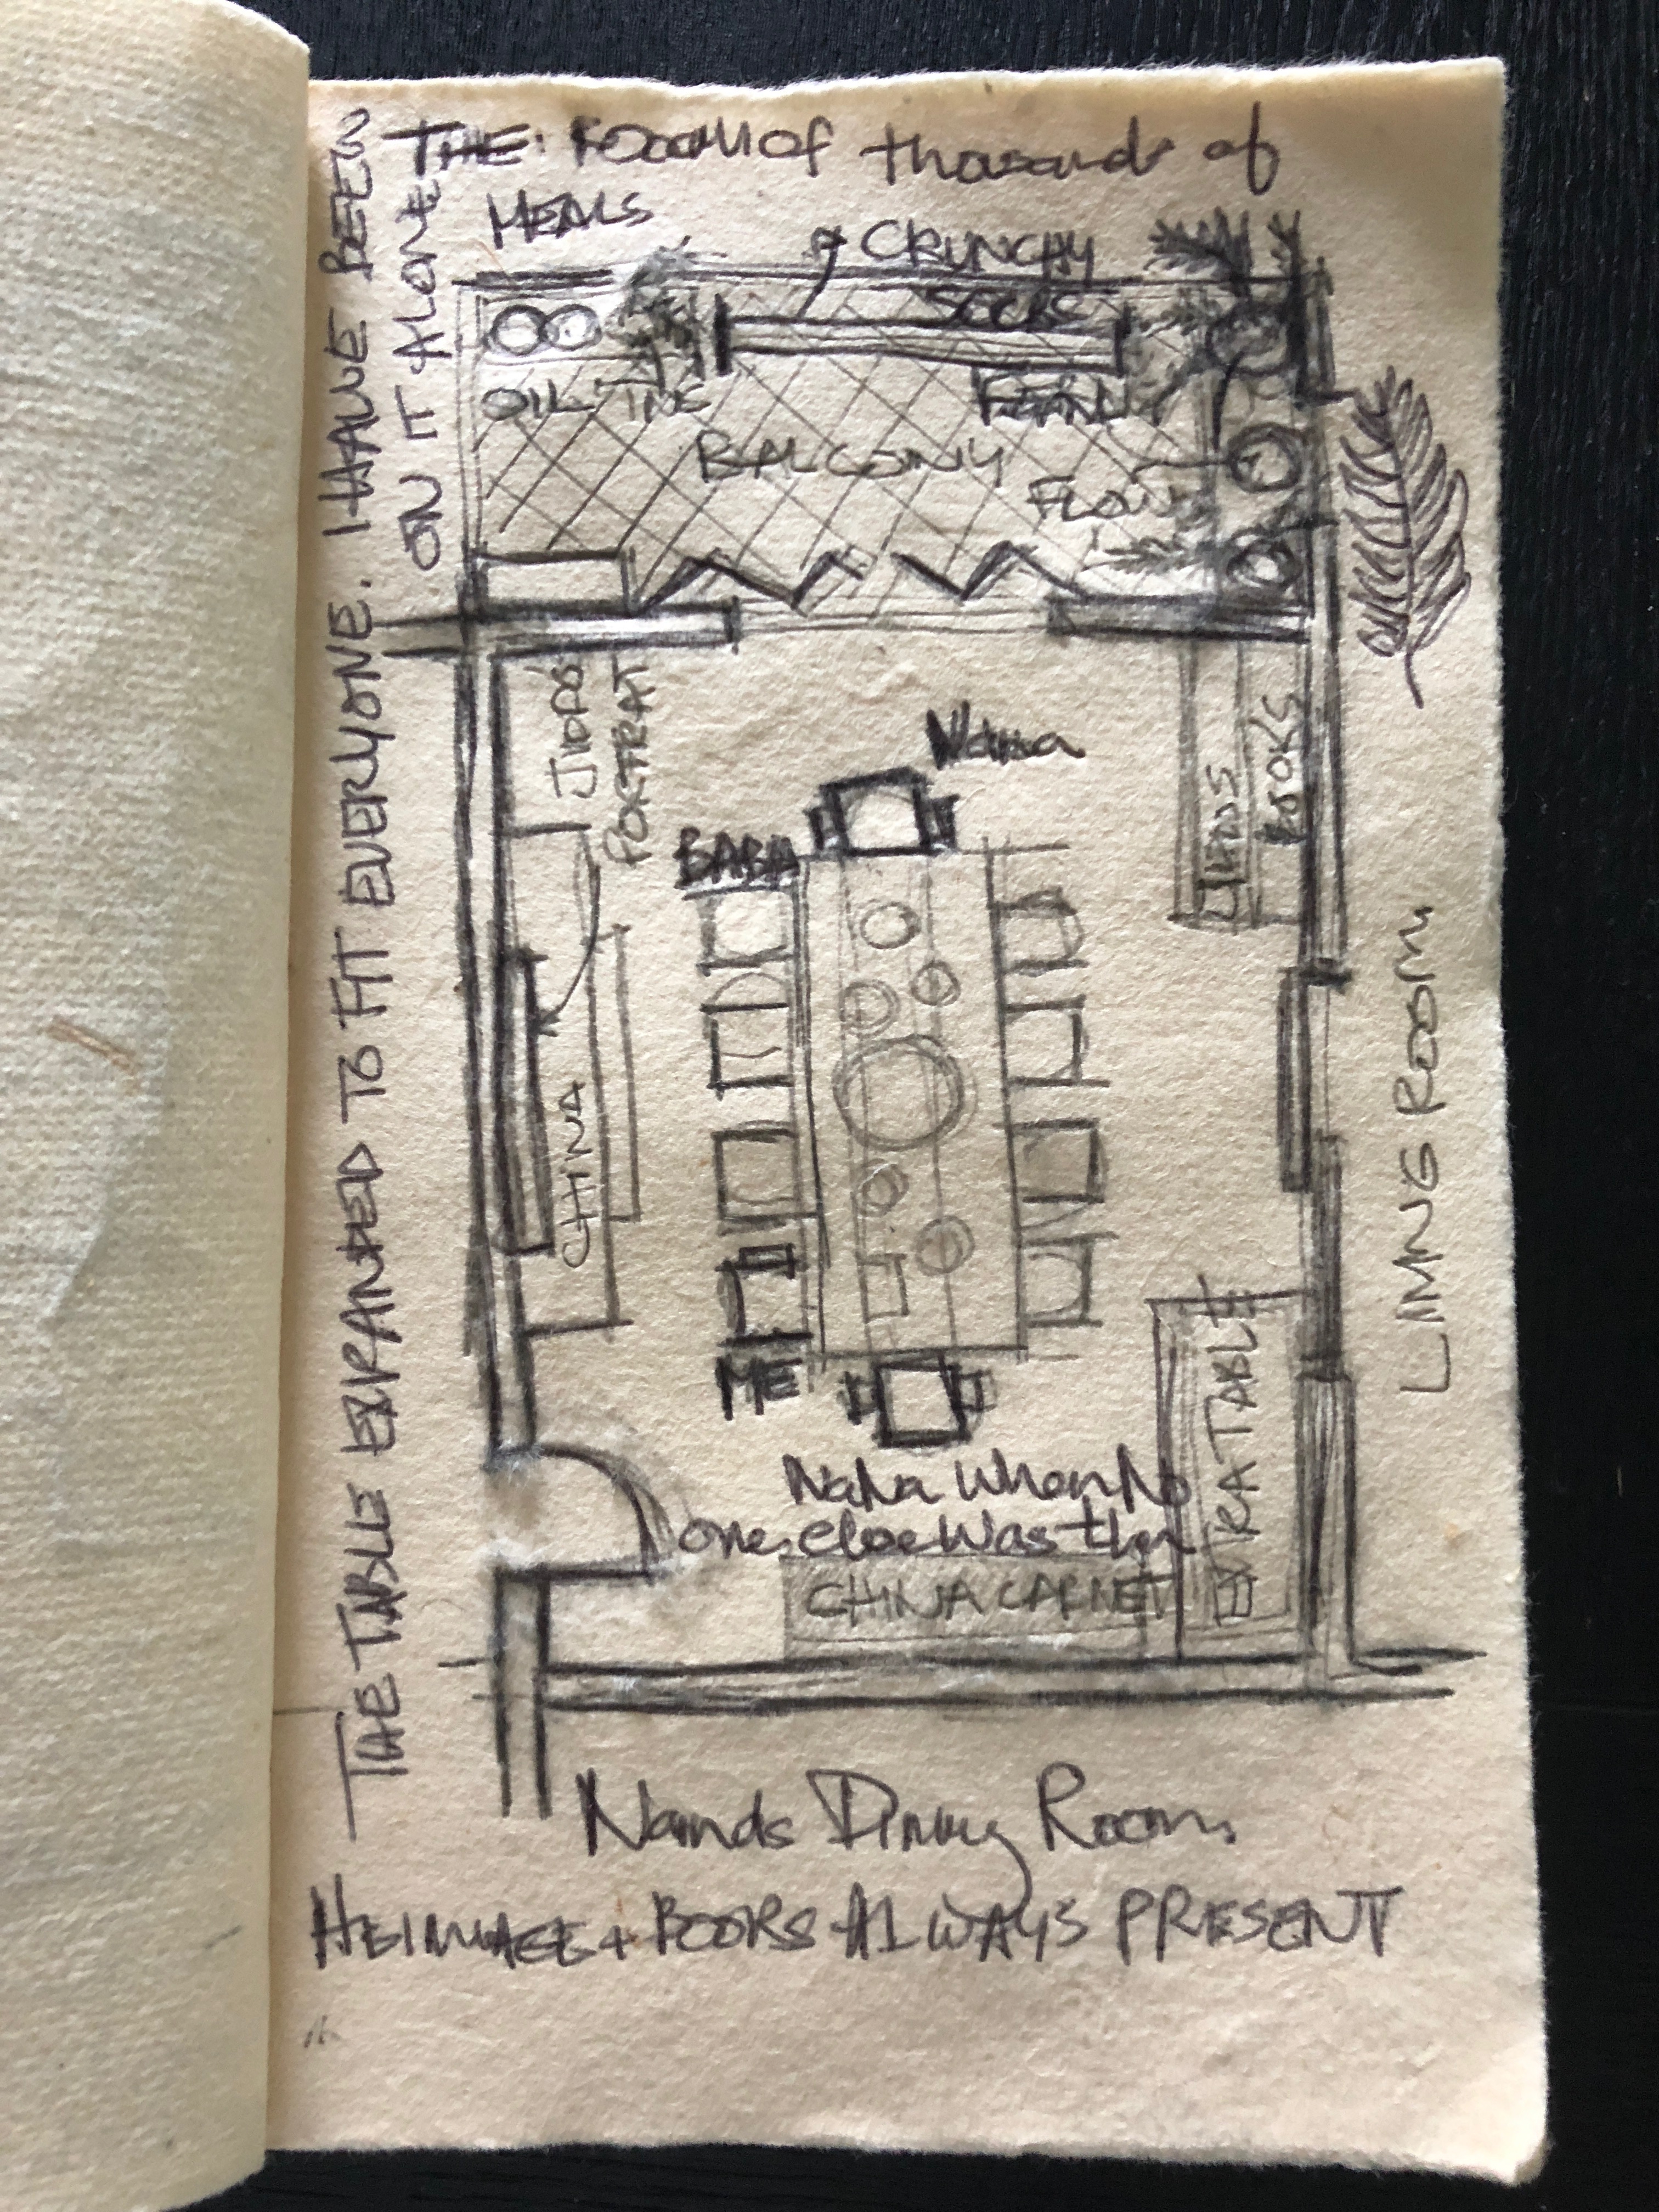 THE: Room of thousands of
MEALS
CRUNCHY
SOCKS
OIL TINS
FERN
BALCONY
FLOW
JIDO'S
PORTRAIT
Nana
JIDO'S
BOOKS
BABA
CHINA
ME
Nana when No
one else was ther
CHINA CABINET
EXTRA TABLE
LIVING ROOM
THE TABLE EXPANDED TO FIT EVERYONE. I HAVE BEEN
ON IT ALONE
Nana's Dining Room
+ BOOKS ALWAYS PRESENT